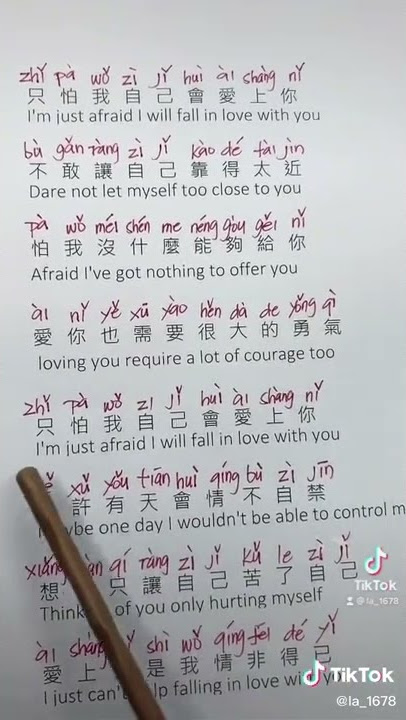 zhǐ pà wǒ zì jǐ huì ài shàng nǐ
只怕我自己會愛上你
I'm just afraid I will fall in love with you
bù gǎn ràng zì jǐ kào dé tài jìn
不敢讓自己靠得太近
Dare not let myself too close to you
pà wǒ méi shén me néng gòu gěi nǐ
怕我沒什麼能夠給你
Afraid I've got nothing to offer you
ài nǐ yě xū yào hěn dà de yǒng qì
愛你也需要很大的勇氣
loving you require a lot of courage too
zhǐ pà wǒ zì jǐ huì ài shàng nǐ
只怕我自己會愛上你
I'm just afraid I will fall in love with you
xǔ yǒu tiān huì qíng bù zì jīn
許有天會情不自禁
one day I wouldn't be able to control m
xiǎng qí ràng zì jǐ kǔ le zì jǐ
想只讓自己苦了自己
of you only hurting myself
ài shàng shì wǒ qíng fēi dé yǐ
愛上是我情非得已
I just can't falling in love with
TikTok
@la_1678
TikTok
@la_1678